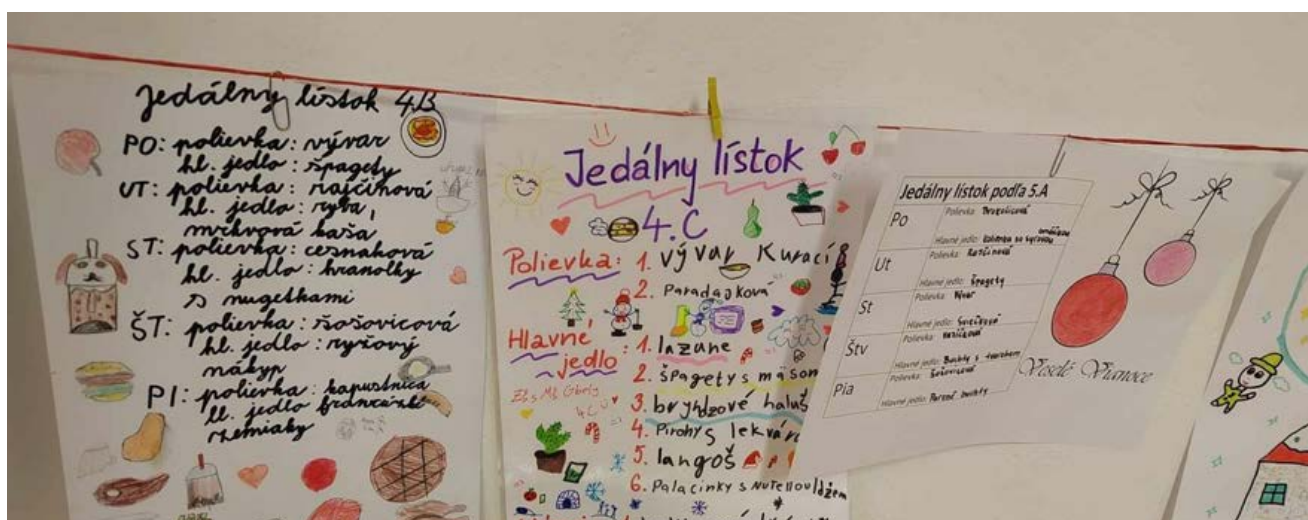 Jedálny lístok 4.B
PO: polievka: vývar
hl. jedlo: špagety
UT: polievka: rajčinová
hl. jedlo: ryba,
mrkvová kaša
ST: polievka: cesnaková
hl. jedlo: hranolky
s nugetkami
ŠT: polievka: šošovicová
hl. jedlo: ryžový
nákyp
PI: polievka: kapustnica
hl. jedlo francúzske
zemiaky
Jedálny lístok
4.C
Polievka: 1. Vývar Kurací
2. Paradajková
Hlavné
jedlo: 1. lazane
2. špagety s mäsom
3. bryndzové haluš
4. Pirohy s lekvárom
5. langoš
6. Palacinky s Nutellou
Jedálny lístok podľa 5.A
Po
Polievka: Brokolicová
Hlavné jedlo:
Ut
Polievka:
Hlavné jedlo: Špagety
St
Polievka: Vývar
Hlavné jedlo:
Štv
Polievka:
Hlavné jedlo: Buchty s tvarohom
Pia
Polievka: Šošovicová
Hlavné jedlo: Parené buchty
Veselé Vianoce